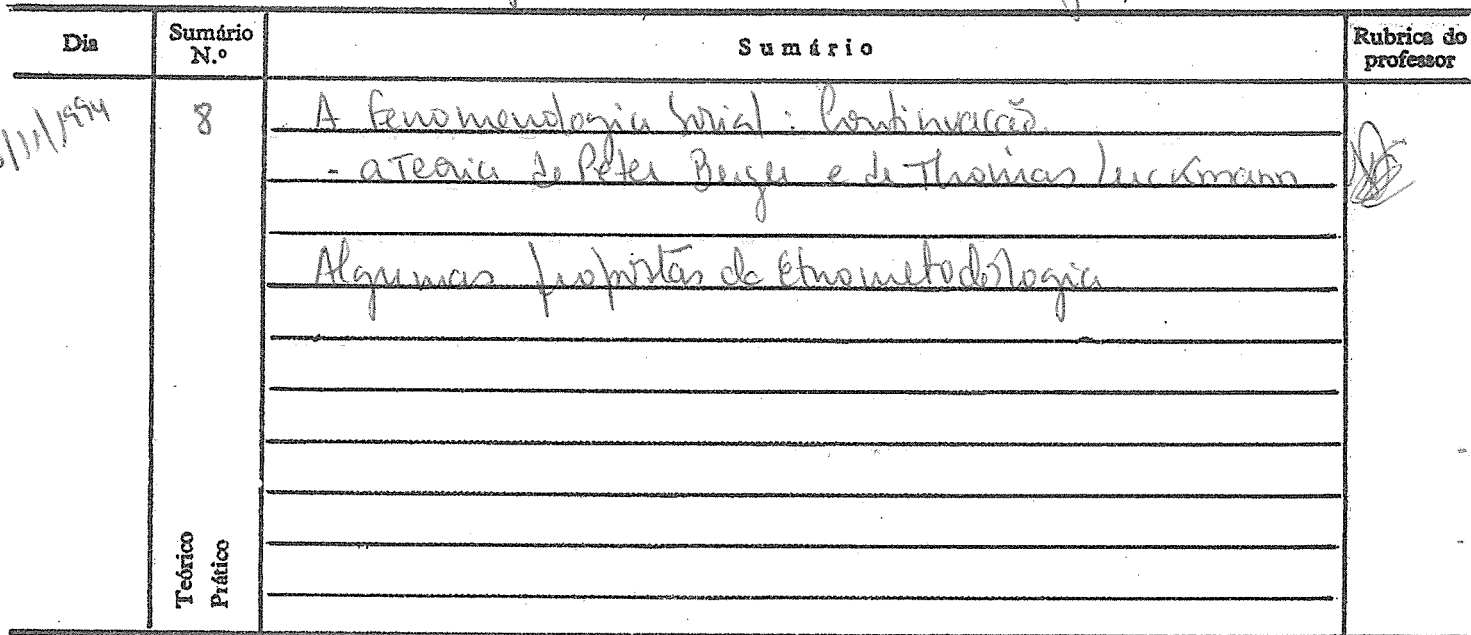 Dia
Sumário N.º
Sumário
Rubrica do professor
/11/1994
8
A fenomenologia social: Continuação.
- a Teoria de Peter Berger e de Thomas Luckmann
Algumas propostas da Etnometodologia
Teórico
Prático